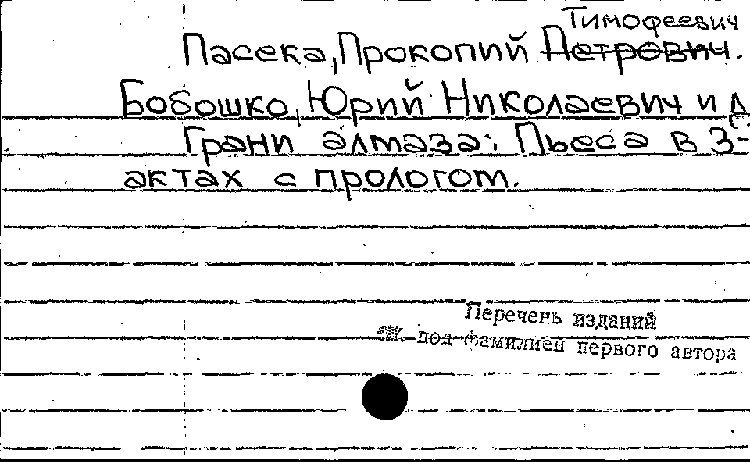 Тимофеевич
Пасека, Прокопий Петрович.
Бобошко, Юрий Николаевич и Д
Грани алмаза: Пьеса в 3-
актах с прологом.
Перечень изданий
см. под фамилией первого автора